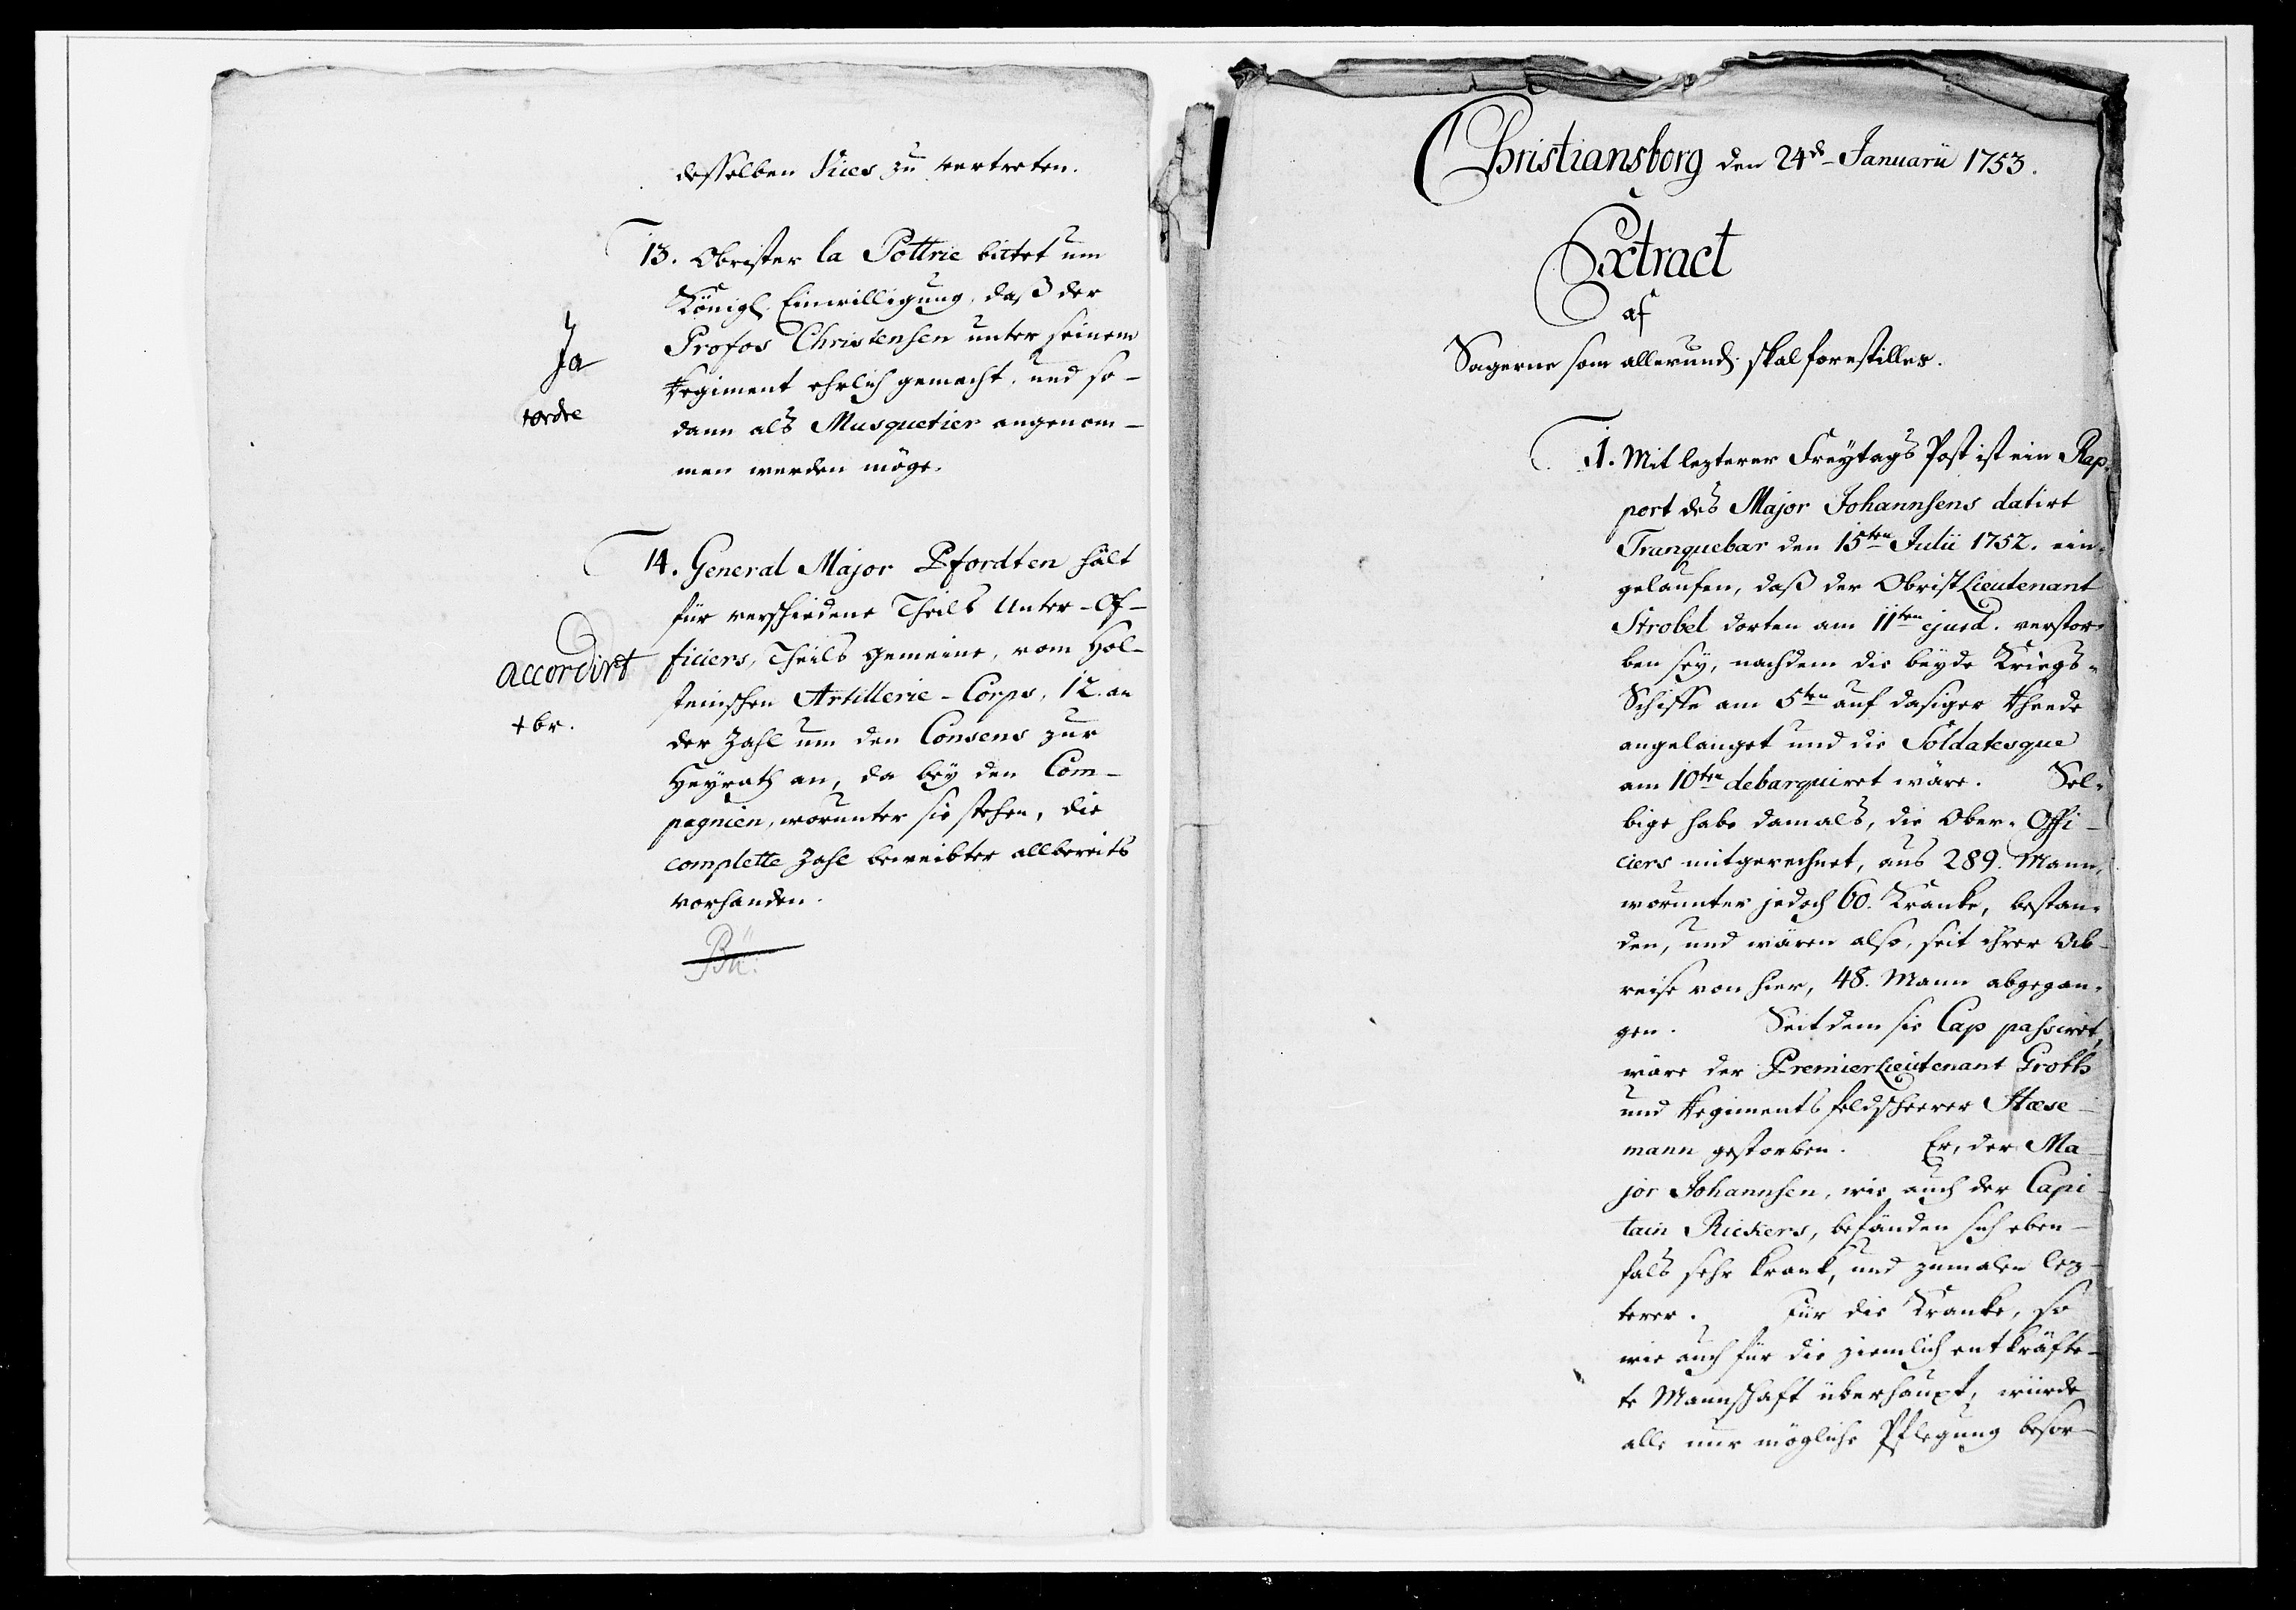 desselben Vices zu vertreten.
13. Obrister la Pottrie bittet um
Königl. Einwilligung, daß der
Profos Christensen unter seinem
Regiment ehrlich gemacht, und so-
dann als Musquetier angenom-
men werden möge.
Ja
+ordre
14. General Major Pfordten hält
für verschiedene Theils Unter-Of-
ficiers, Theils Gemeine, vom Hol-
steinischen Artillerie-Corps, 12. an
der Zahl um den Consens zur
Heyrath an, da bey den Com-
pagnien, worunter sie stehen, die
complette Zahl beweibter allbereits
vorhanden.
accordirt
+br.
Bü:
Christiansborg den 24de Januarii 1753.
Extract
af
Sagerne som allerund. skal forestilles.
1. Mit lezterer Freytags Post ist ein Rap-
port des Major Johannsens datirt
Tranquebar den 15ten Julii 1752. ein-
gelaufen, daß der ObristLieutenant
Strobel dorten am 11ten ejusd. verstor-
ben sey, nachdem die beyde Kriegs-
Schiffe am 5ten auf dasiger Rheede
angelanget und die Soldatesque
am 10ten debarquiret wäre. Sel-
bige habe damals, die Ober-Offi-
ciers mitgerechnet, aus 289. Mann,
worunter jedoch 60. Kranke, bestan-
den, und wären also, seit ihrer Ab-
reise von hier, 48. Mann abgegan-
gen. Seitdem sie Cap passiret,
wäre der PremierLieutenant Groth
und Regiments feldscheerer Hæse-
mann gestorben. Er, der Ma-
jor Johannsen, wie auch der Capi-
tain Rickers, befänden sich eben-
fals sehr krank, und zumalen lez-
terer. Für die Kranke, so
wie auch für die ziemlich entkräfte-
te Mannschaft überhaupt, würde
alle nur mögliche Pflegung besor-